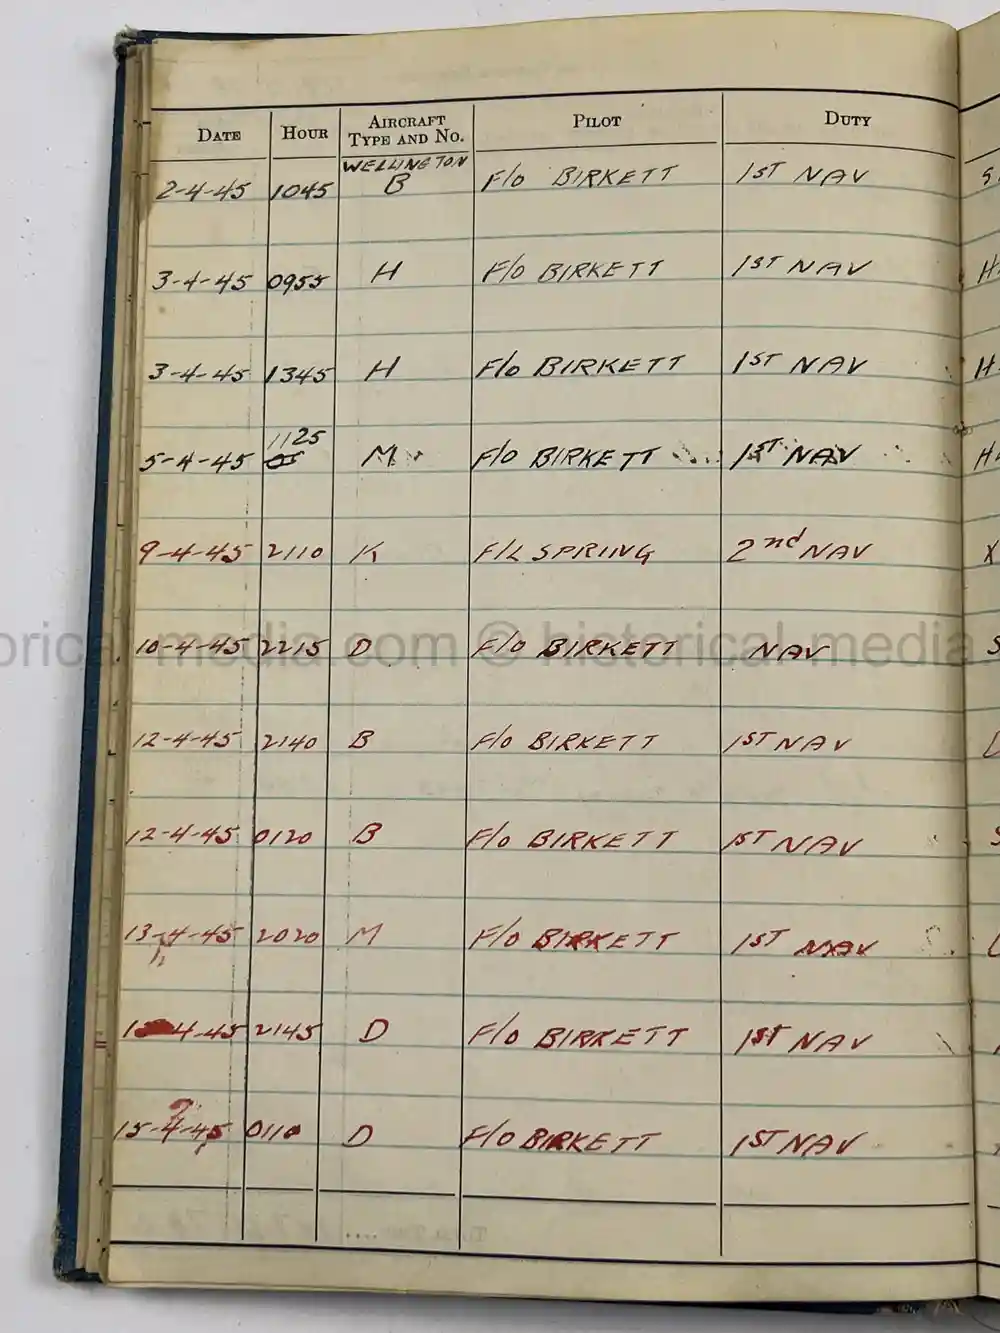 DATE HOUR AIRCRAFT TYPE AND NO. PILOT DUTY
WELLINGTON
2-4-45 1045 B F/O BIRKETT 1ST NAV
3-4-45 0955 H F/O BIRKETT 1ST NAV H
3-4-45 1345 H F/O BIRKETT 1ST NAV H
1125
5-4-45 M F/O BIRKETT 1ST NAV H
9-4-45 2110 K F/L SPRING 2nd NAV X
10-4-45 2215 D F/O BIRKETT NAV S
orical-media.com © historical-media.
12-4-45 2140 B F/O BIRKETT 1ST NAV
12-4-45 0120 B F/O BIRKETT 1ST NAV S
13-4-45 2020 M F/O BIRKETT 1ST NAV
4-45 2145 D F/O BIRKETT 1ST NAV
15-4-45 0110 D F/O BIRKETT 1ST NAV